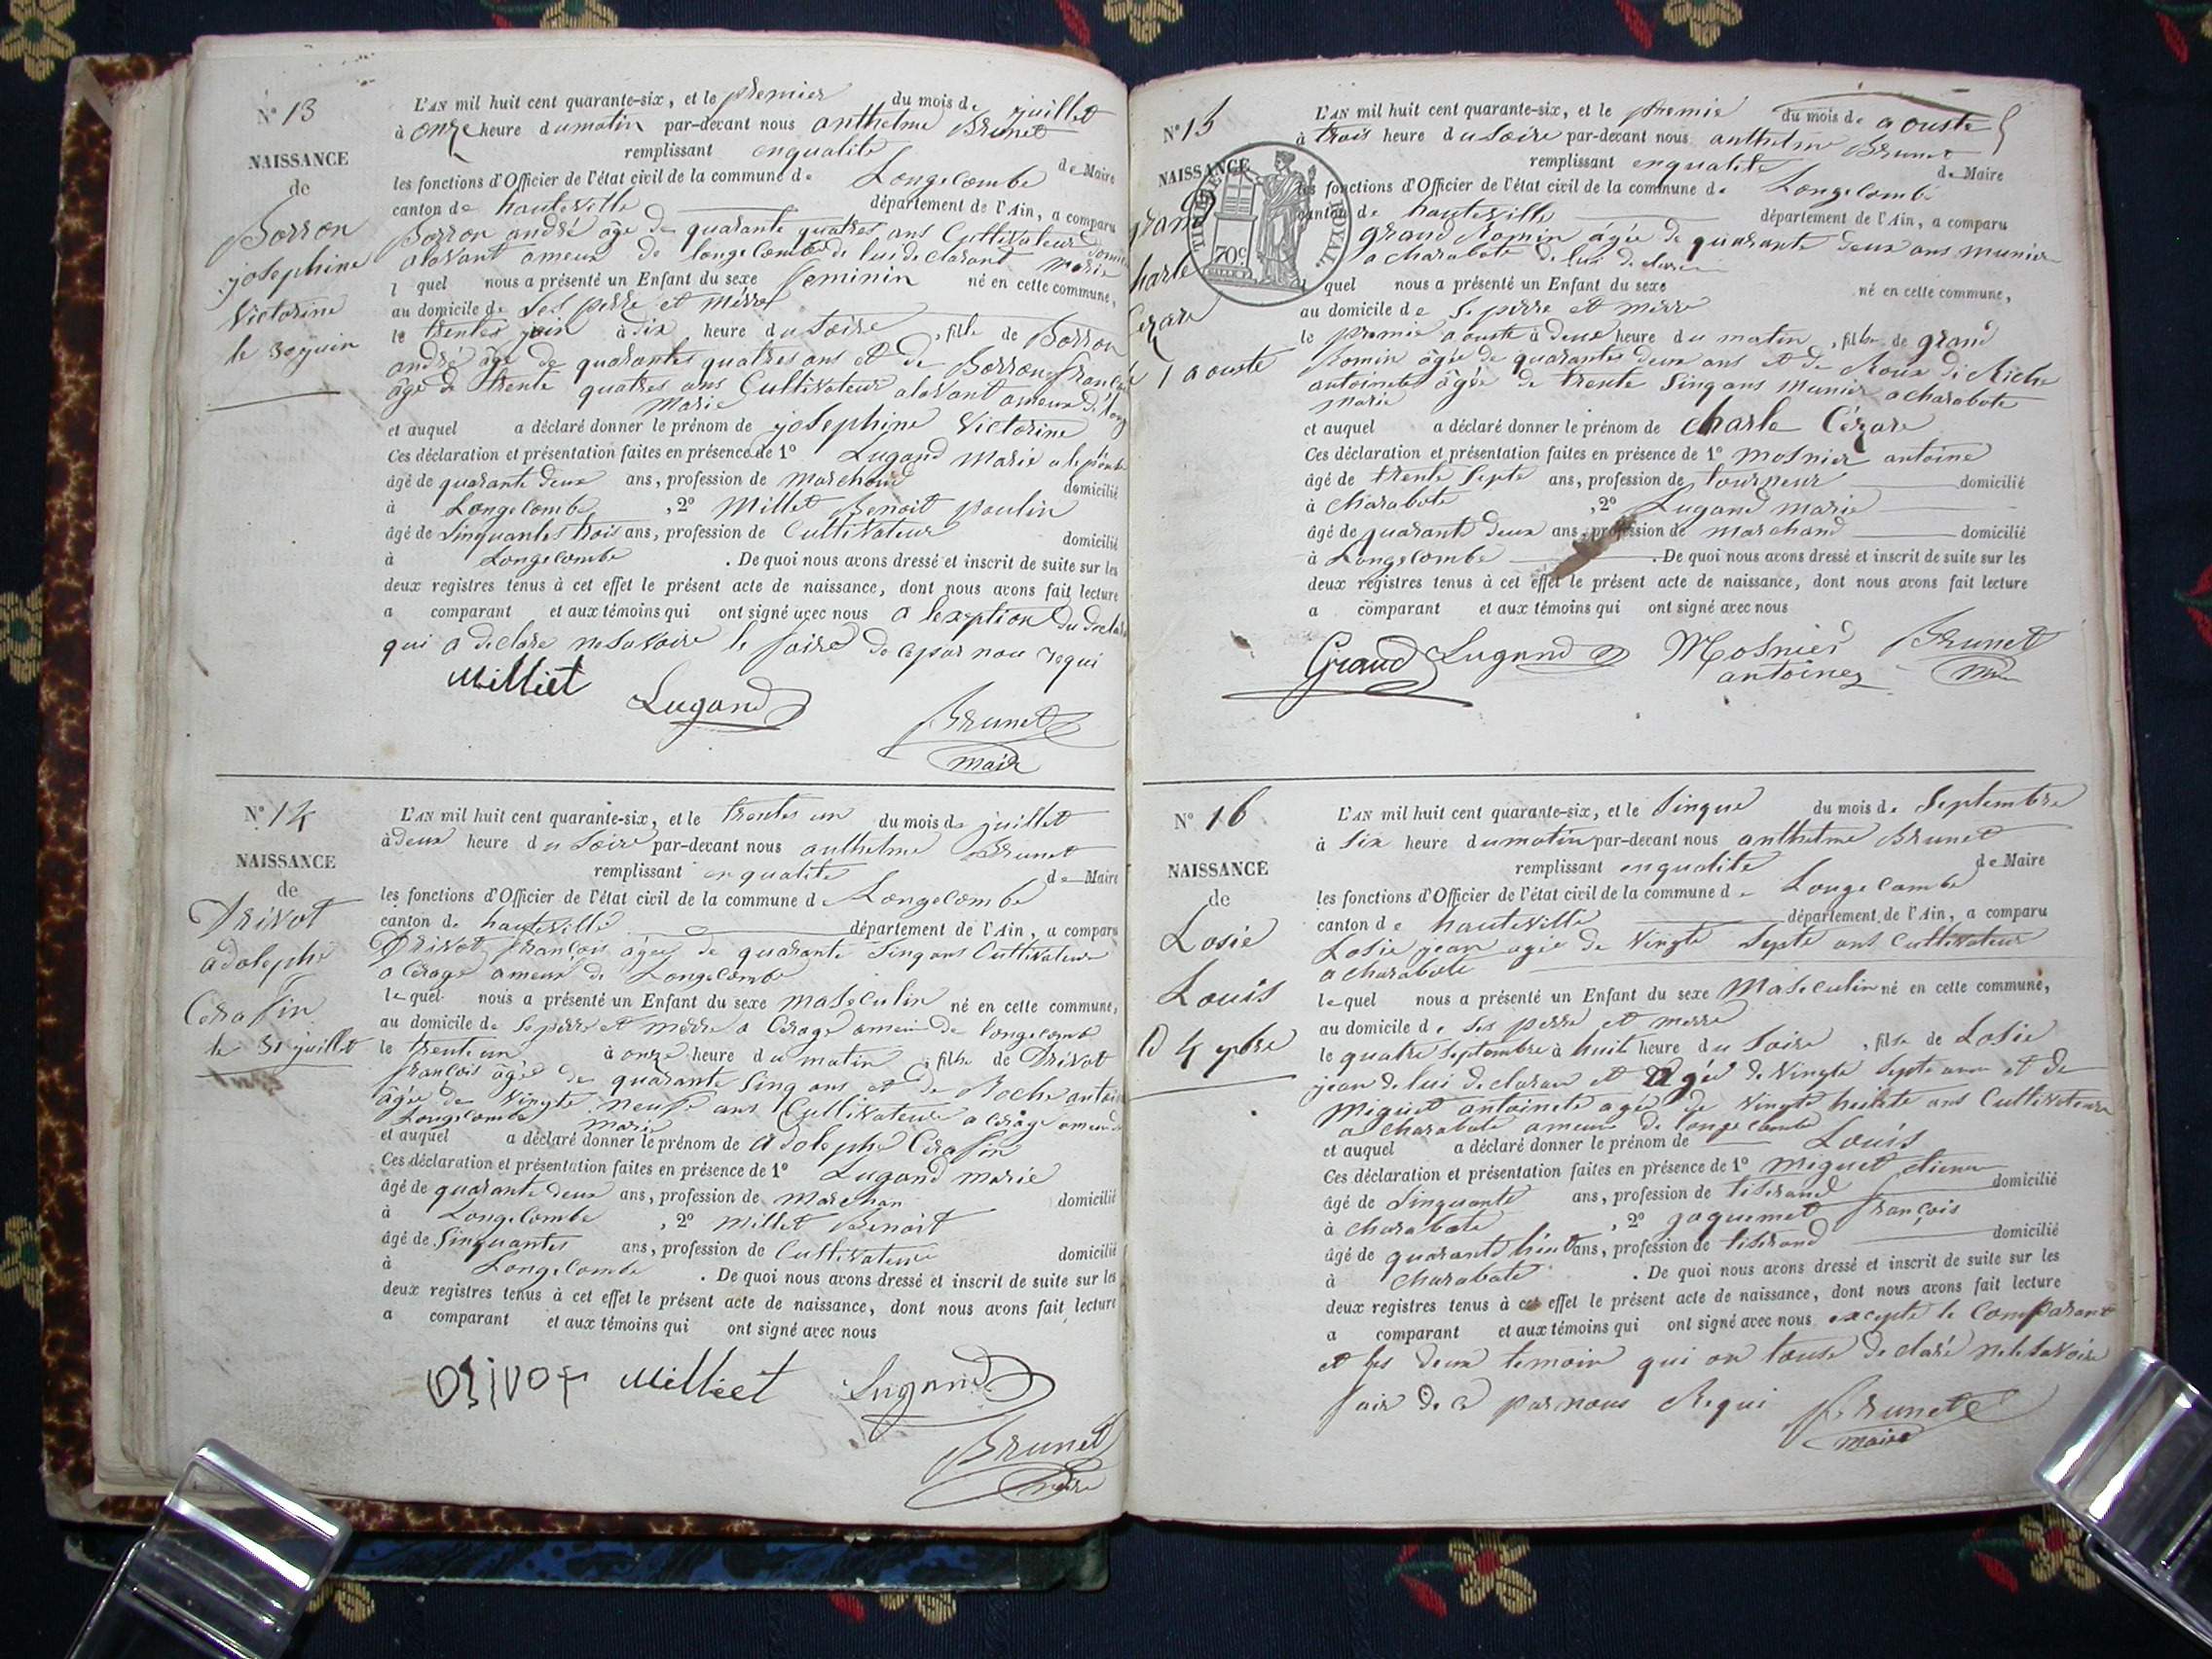 N° 13
NAISSANCE
de
Borron
josephine
Victorine
le 30 juin
L'AN mil huit cent quarante-six, et le premier du mois de juillet
à onze heure du matin par-devant nous anthelme Brunet
remplissant enqualite de Maire
les fonctions d'Officier de l'état civil de la commune de Longecombe
canton de hauteville département de l'Ain, a comparu
Borron andré age de quarante quatres ans Cultivateur
alavant ameux de longecombe de lui declarant Marie
l quel nous a présenté un Enfant du sexe feminin né en cette commune,
au domicile de Ses perre et merre
le trentes juin à six heure du Soire, fille de Borron
andré age de quarantes quatres ans et de Borron francoi
age de trente quatres ans Cultivateur alavant ameux de long
Marie
et auquel a déclaré donner le prénom de josephine Victorine
Ces déclaration et présentation faites en présence de 1° Lugand Marie
âgé de quarante deux ans, profession de Marchand domicilié
à Longecombe, 2° Millet Benoit paulin
âgé de Sinquantes trois ans, profession de Cultivateur domicilié
à Longecombe. De quoi nous avons dressé et inscrit de suite sur les
deux registres tenus à cet effet le présent acte de naissance, dont nous avons fait lecture
a comparant et aux témoins qui ont signé avec nous a lexption du decla
qui a declare ne Savoire le faire de ce par nou requi
Milliet
Lugand
Brunet
Maire
N° 14
NAISSANCE
de
Drivot
adolephe
Cerafin
le 31 juillet
L'AN mil huit cent quarante-six, et le trentes un du mois de juillet
à deux heure du Soire par-devant nous anthelme Brunet
remplissant enqualite de Maire
les fonctions d'Officier de l'état civil de la commune de Longecombe
canton de hauteville département de l'Ain, a comparu
Drivot françois agée de quarante Sinq ans Cultivateur
a Cerage ameux de Longecombe
le quel nous a présenté un Enfant du sexe Masculin né en cette commune,
au domicile de Se perre et merre a Cerage ameux de longecombe
le trente un à onze heure du matin, fils de Drivot
françois agée de quarante Sinq ans et de Roche antoi
âgée de Vingte neufe ans Cultivateur a Cerage ameux d
Longecombe marie
et auquel a déclaré donner le prénom de Adolephe Cerafin
Ces déclaration et présentation faites en présence de 1° Lugand marie
âgé de quarante deux ans, profession de Marchan domicilié
à Longecombe, 2° Millet Benoit
âgé de Sinquantes ans, profession de Cultivateur domicilié
à Longecombe. De quoi nous avons dressé et inscrit de suite sur les
deux registres tenus à cet effet le présent acte de naissance, dont nous avons fait lecture
a comparant et aux témoins qui ont signé avec nous
Drivot Milliet Lugand
Brunet
Maire
N° 15
NAISSANCE
TIMBRE ROYAL
70c
grand
harle
Cezare
1 aouste
L'AN mil huit cent quarante-six, et le premie du mois de aouste
à trois heure du Soire par-devant nous anthelme Brunet
remplissant enqualite de Maire
les fonctions d'Officier de l'état civil de la commune de Longecombe
canton de hauteville département de l'Ain, a comparu
grand Romin agée de quarante deux ans munier
a charabote de lui declaran
quel nous a présenté un Enfant du sexe né en cette commune,
au domicile de Se perre et merre
le premie aouste à deux heure du matin, fils de grand
Romin âgée de quarantes deux ans et de Roux di Riche
antoinete âgée de trente Sinq ans munier a charabote
marie
et auquel a déclaré donner le prénom de charle Cézare
Ces déclaration et présentation faites en présence de 1° Mosnier antoine
âgé de trente Septe ans, profession de tourneur domicilié
à charabote, 2° Lugand marie
âgé de quarant deux ans, profession de marchand domicilié
à Longecombe. De quoi nous avons dressé et inscrit de suite sur les
deux registres tenus à cet effet le présent acte de naissance, dont nous avons fait lecture
a comparant et aux témoins qui ont signé avec nous
Grand Lugand Mosnier Brunet
antoine
N° 16
NAISSANCE
de
Losie
Louis
4 7bre
L'AN mil huit cent quarante-six, et le Sinque du mois de Septembre
à Six heure du matin par-devant nous anthelme Brunet
remplissant enqualite de Maire
les fonctions d'Officier de l'état civil de la commune de Longecombe
canton de hauteville département de l'Ain, a comparu
Losie jean agée de Vingte Septe ans Cultivateur
a charabote
le quel nous a présenté un Enfant du sexe Masculin né en cette commune,
au domicile de Ses perre et merre
le quatre Septembre à huit heure du Soire, fils de Losie
jean de lui declaran et agée de Vingte Septe ans et de
Miguet antoinete agée de Vingte huite ans Cultivateur
a charabote ameux de longecombe
et auquel a déclaré donner le prénom de Louis
Ces déclaration et présentation faites en présence de 1° Miguet etienne
âgé de Sinquante ans, profession de tiserand domicilié
à charabote, 2° jaquemet françois
âgé de quarante huit ans, profession de tiserand domicilié
à charabote. De quoi nous avons dressé et inscrit de suite sur les
deux registres tenus à cet effet le présent acte de naissance, dont nous avons fait lecture
a comparant et aux témoins qui ont signé avec nous excepte le Comparant
et les deux temoin qui on touse declaré nele Savoire
fair de ce par nous Requi Brunet
maire